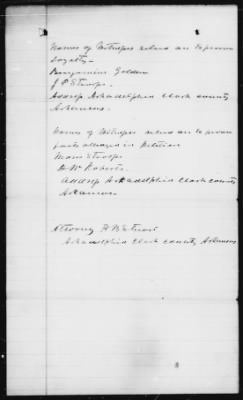 Names of Witnesses relied on to prove
Loyalty —
Benjamin Golden
J P Stroope
Address Arkadelphia Clark County
Arkansas.
Names of Witnesses relied on to prove
facts alleged in petition
Stroope
Roberts
Address Arkadelphia Clark County
Arkansas
Attorney H
Arkadelphia Clark County Arkansas